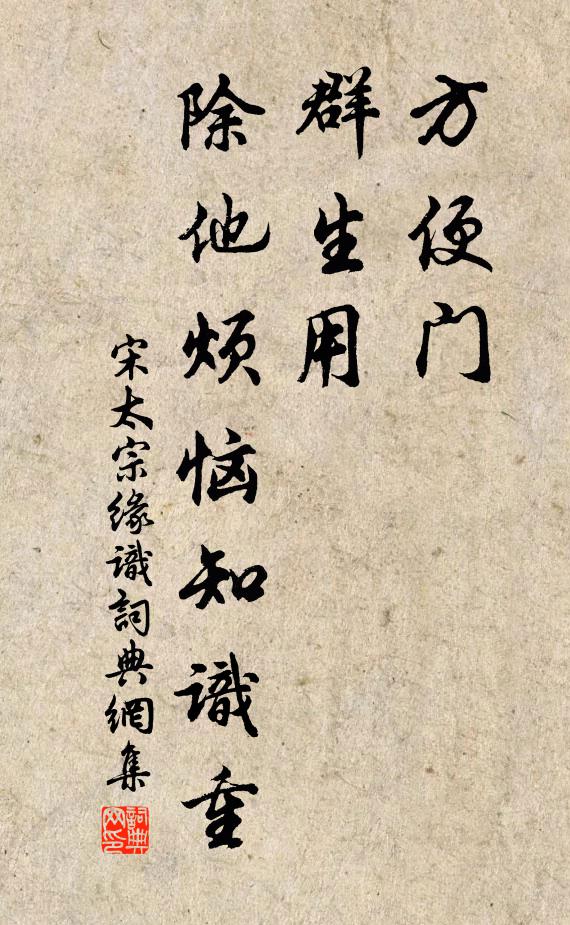 方便门
群生用
除他烦恼知識重
宋太宗缘識詞典網集
詞典网印